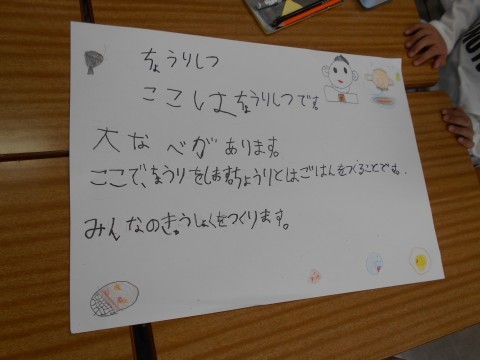 ちょうりしつ
ここはちょうりしつです。
大なべがあります。
ここで、ちょうりをします。ちょうりとはごはんをつくることです。
みんなのきゅうしょくをつくります。